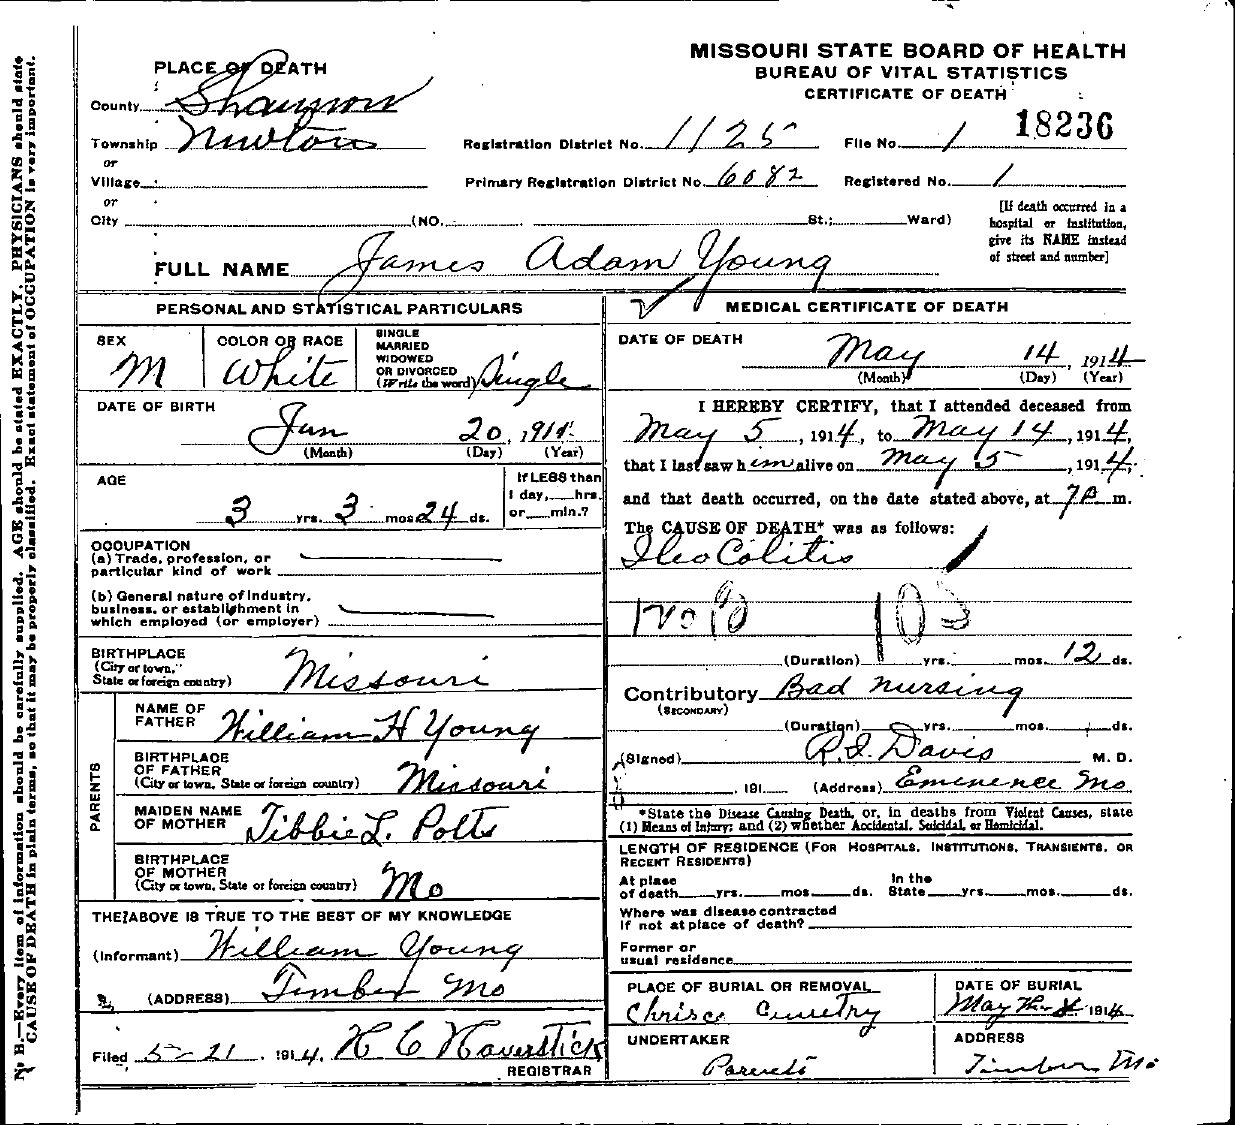 MISSOURI STATE BOARD OF HEALTH
BUREAU OF VITAL STATISTICS
CERTIFICATE OF DEATH
18236
PLACE OF DEATH
County Shannon
Township Newton Registration District No. 1125 File No. 1
or
Village Primary Registration District No. 6082 Registered No. 1
or
City (NO. St.; Ward)
[If death occurred in a
hospital or institution,
give its NAME instead
of street and number]
FULL NAME James Adam Young
PERSONAL AND STATISTICAL PARTICULARS
SEX
M
COLOR OR RACE
White
SINGLE
MARRIED
WIDOWED
OR DIVORCED
(Write the word) Single
DATE OF BIRTH
Jan 20, 1911
(Month) (Day) (Year)
AGE
3 yrs. 3 mos. 24 ds.
If LESS than
1 day, hrs.
or min.?
OCCUPATION
(a) Trade, profession, or
particular kind of work
(b) General nature of Industry,
business, or establishment in
which employed (or employer)
BIRTHPLACE
(City or town,
State or foreign country) Missouri
PARENTS
NAME OF
FATHER William H Young
BIRTHPLACE
OF FATHER
(City or town, State or foreign country) Missouri
MAIDEN NAME
OF MOTHER Tibbie L. Potts
BIRTHPLACE
OF MOTHER
(City or town, State or foreign country) Mo
THE ABOVE IS TRUE TO THE BEST OF MY KNOWLEDGE
(Informant) William Young
(ADDRESS) Timber Mo
Filed 5-21, 1914, H C Haverstick
REGISTRAR
MEDICAL CERTIFICATE OF DEATH
DATE OF DEATH
May 14, 1914
(Month) (Day) (Year)
I HEREBY CERTIFY, that I attended deceased from
May 5, 1914, to May 14, 1914,
that I last saw him alive on May 5, 1914,
and that death occurred, on the date stated above, at 7 m.
The CAUSE OF DEATH* was as follows:
Ileo Colitis
103
(Duration) yrs. mos. 12 ds.
Contributory Bad nursing
(SECONDARY)
(Duration) yrs. mos. ds.
(Signed) R.I. Davis M. D.
, 191 (Address) Eminence Mo
*State the Disease Causing Death, or, in deaths from Violent Causes, state
(1) Means of Injury; and (2) whether Accidental, Suicidal, or Homicidal.
LENGTH OF RESIDENCE (FOR HOSPITALS, INSTITUTIONS, TRANSIENTS, OR
RECENT RESIDENTS)
At place In the
of death yrs. mos. ds. State yrs. mos. ds.
Where was disease contracted
If not at place of death?
Former or
usual residence
PLACE OF BURIAL OR REMOVAL
Cemetry
DATE OF BURIAL
May 1914
UNDERTAKER
Parents
ADDRESS
Timber Mo.
N. B.—Every item of information should be carefully supplied. AGE should be stated EXACTLY. PHYSICIANS should state
CAUSE OF DEATH in plain terms, so that it may be properly classified. Exact statement of OCCUPATION is very important.